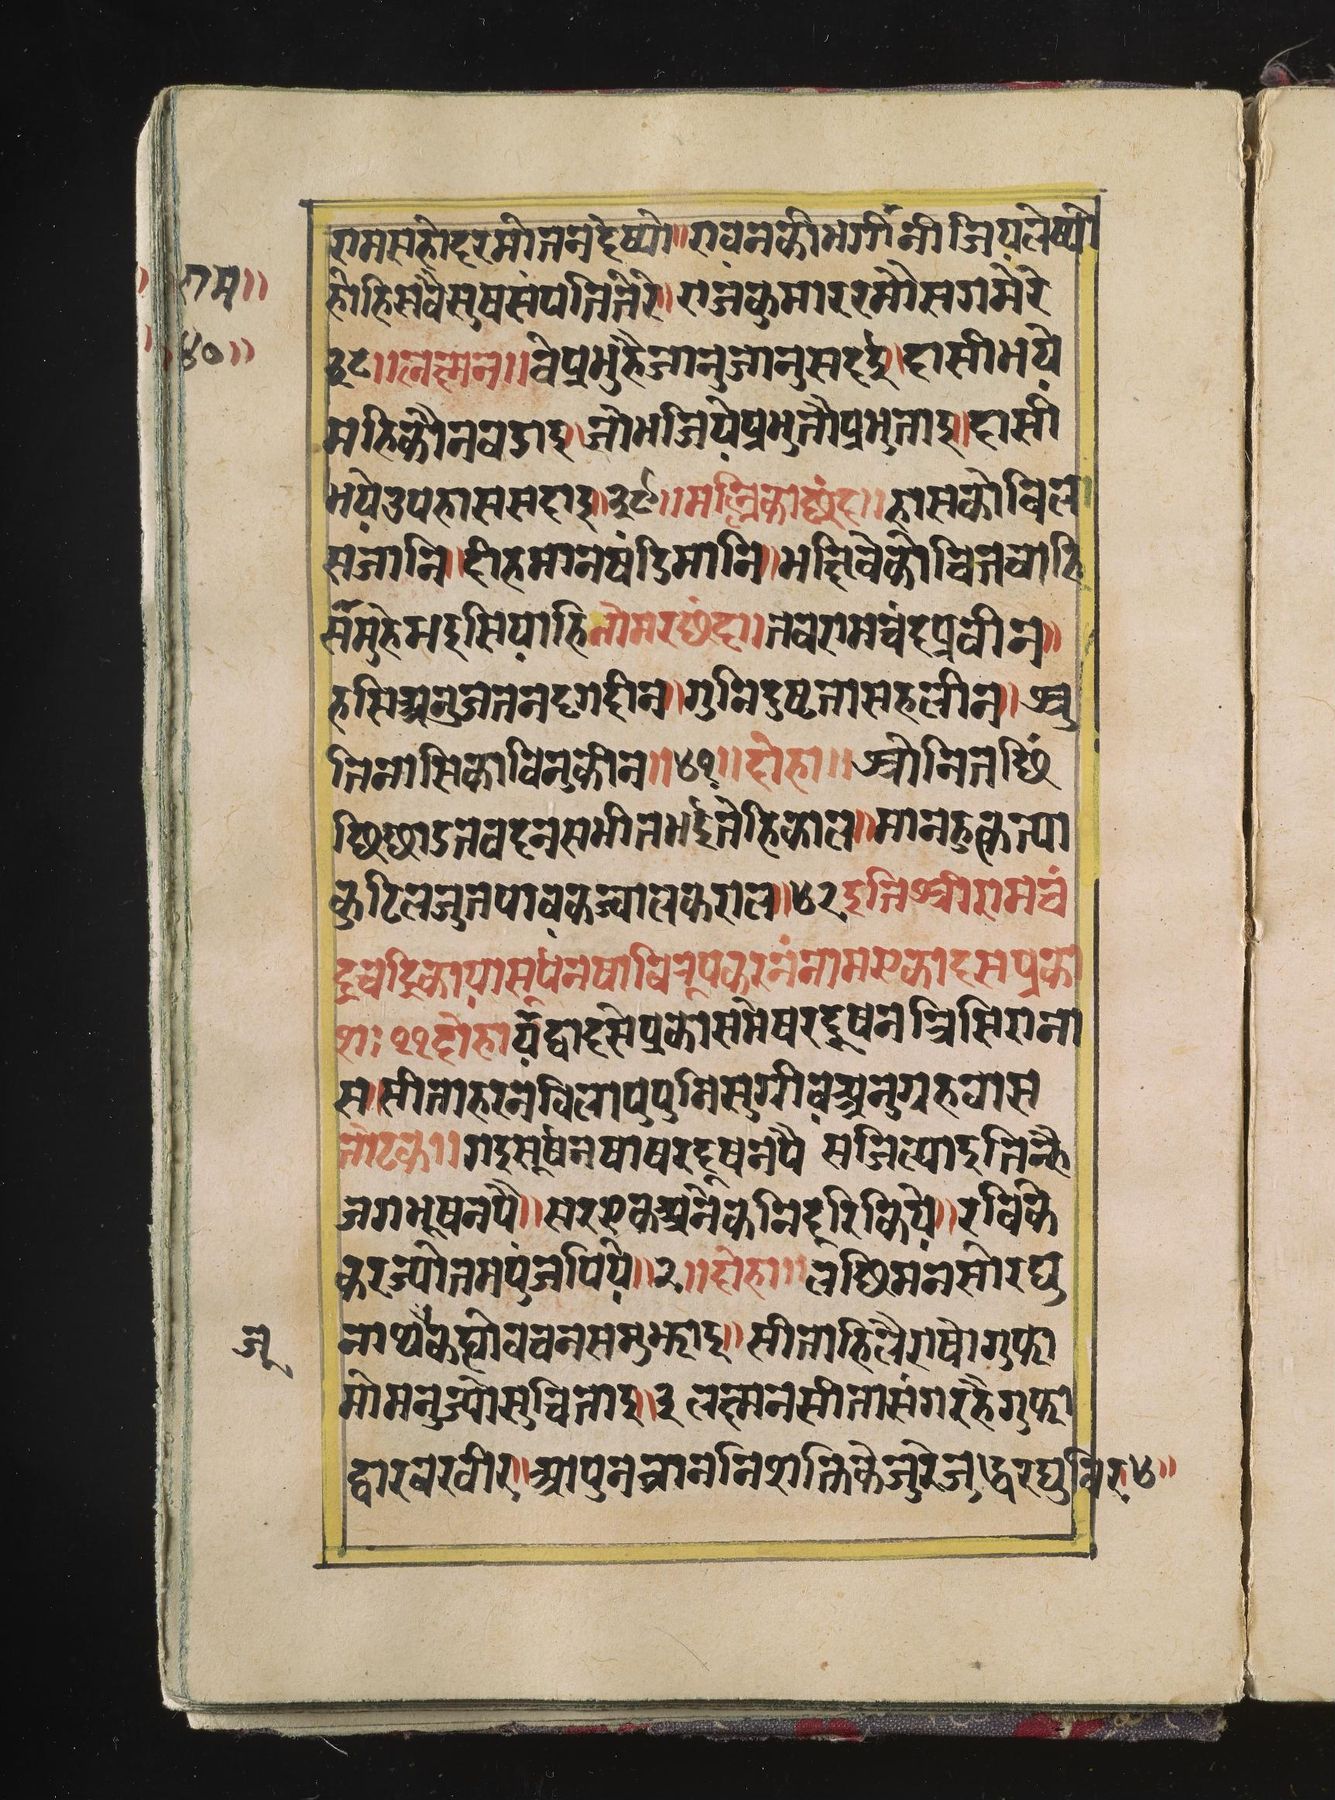 राम सहोदर मो तन देष्यो॥ रावन की भगिनी जिय लेष्यो
राम॥
होहि सवै सुष संपति तेरे॥ राजकुमार रमौ सग मेरे
४०॥
३८॥ लत्मन॥ वे प्रभु है जानु जानु सदाइ॥ दासी भये
महि कौन वडाइ॥ जौ भजिये प्रभु तौ प्रभुताइ॥ दासी
भये उपहास सदाइ॥ ३९॥ मल्लिका छंद॥ हास को विल
स जानि॥ दीह मान षंडि मानि॥ भछिवे को चित चाहि
सँमुहे भइ सिया हि तोमर छंद॥ तव रामचंद्र प्रवीन॥
हसि अनुज तन दृग दीन॥ गुनि दुष्टता सह लीन॥ श्रु
ति नासिका विनु कीन॥ ४१॥ दोहा॥ श्रोनित छिं
छि छाडत वदन सभीत भई तेहि काल॥ मानहु कृत्या
कुटिल जुत पावक ज्वाल कराल॥ ४२ इति श्री राम चं
द्र चंद्रिकाया सर्पनषा विरूप करनं नाम एकादस प्रका
शः ११ दोहा यँ द्वादसे प्रकास मे षरदूषन त्रिसिरा ना
स॥ सीता हरन विलापु पुनि सुग्रीव अनुग्रह वास
तोटक॥ गइ सूर्पनषा षरदूषन पै सजि ल्याइ तिन्है
जगभूषन पै॥ सर एक अनेकनि दूरि किये॥ रवि के
कर ज्यो तम पुंज पिये॥ २॥ दोहा॥ लछिमन सो रघु
नाथ कह्यो वचन समुझाइ॥ सीतहि लै राषो गुफा
जू
मो मनु ज्यो सु चिताइ॥ ३ लत्मन सीता संग रहै गुफा
द्वार वर वीर॥ आपुन वानन निशक्ति कै जुरे जुद्ध रघुविर ४॥